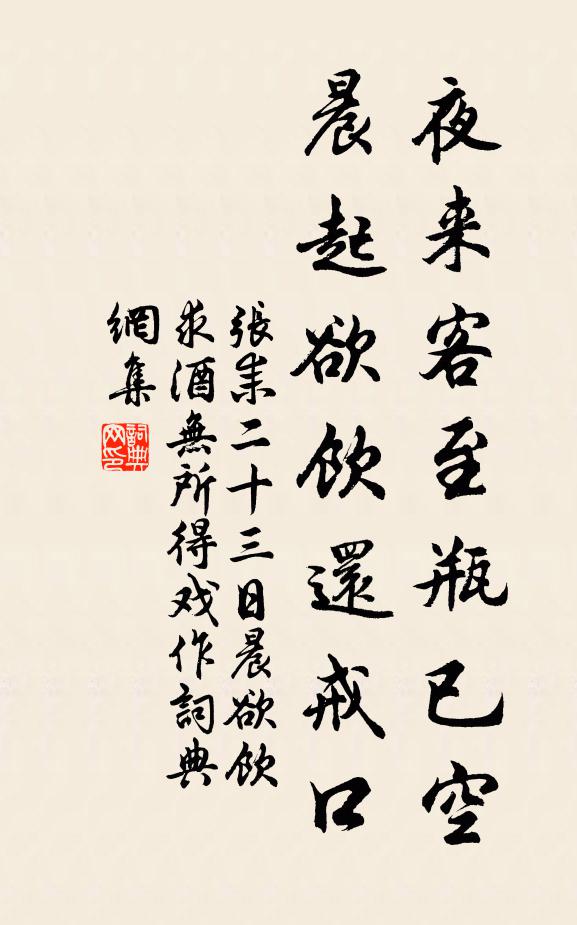 夜来客至瓶已空
晨起欲飲還戒口
張耒二十三日晨欲飲
求酒無所得戏作詞典
網集
詞典
网印